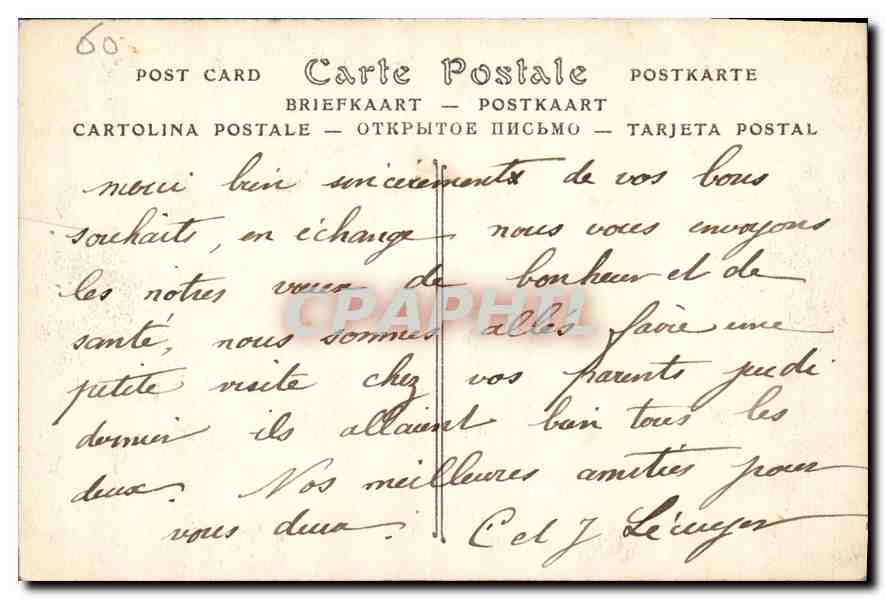 60
POST CARD Carte Postale POSTKARTE
BRIEFKAART — POSTKAART
CARTOLINA POSTALE — ОТКРЫТОЕ ПИСЬМО — TARJETA POSTAL
merci bien sincèrement de vos bons
souhaits, en échange nous vous envoyons
les notres vœux de bonheur et de
santé, nous sommes allés faire une
petite visite chez vos parents jeudi
dernier ils allaient bien tous les
deux. Nos meilleures amitiés pour
vous deux. C et J Lécuyer
CPAPHIL